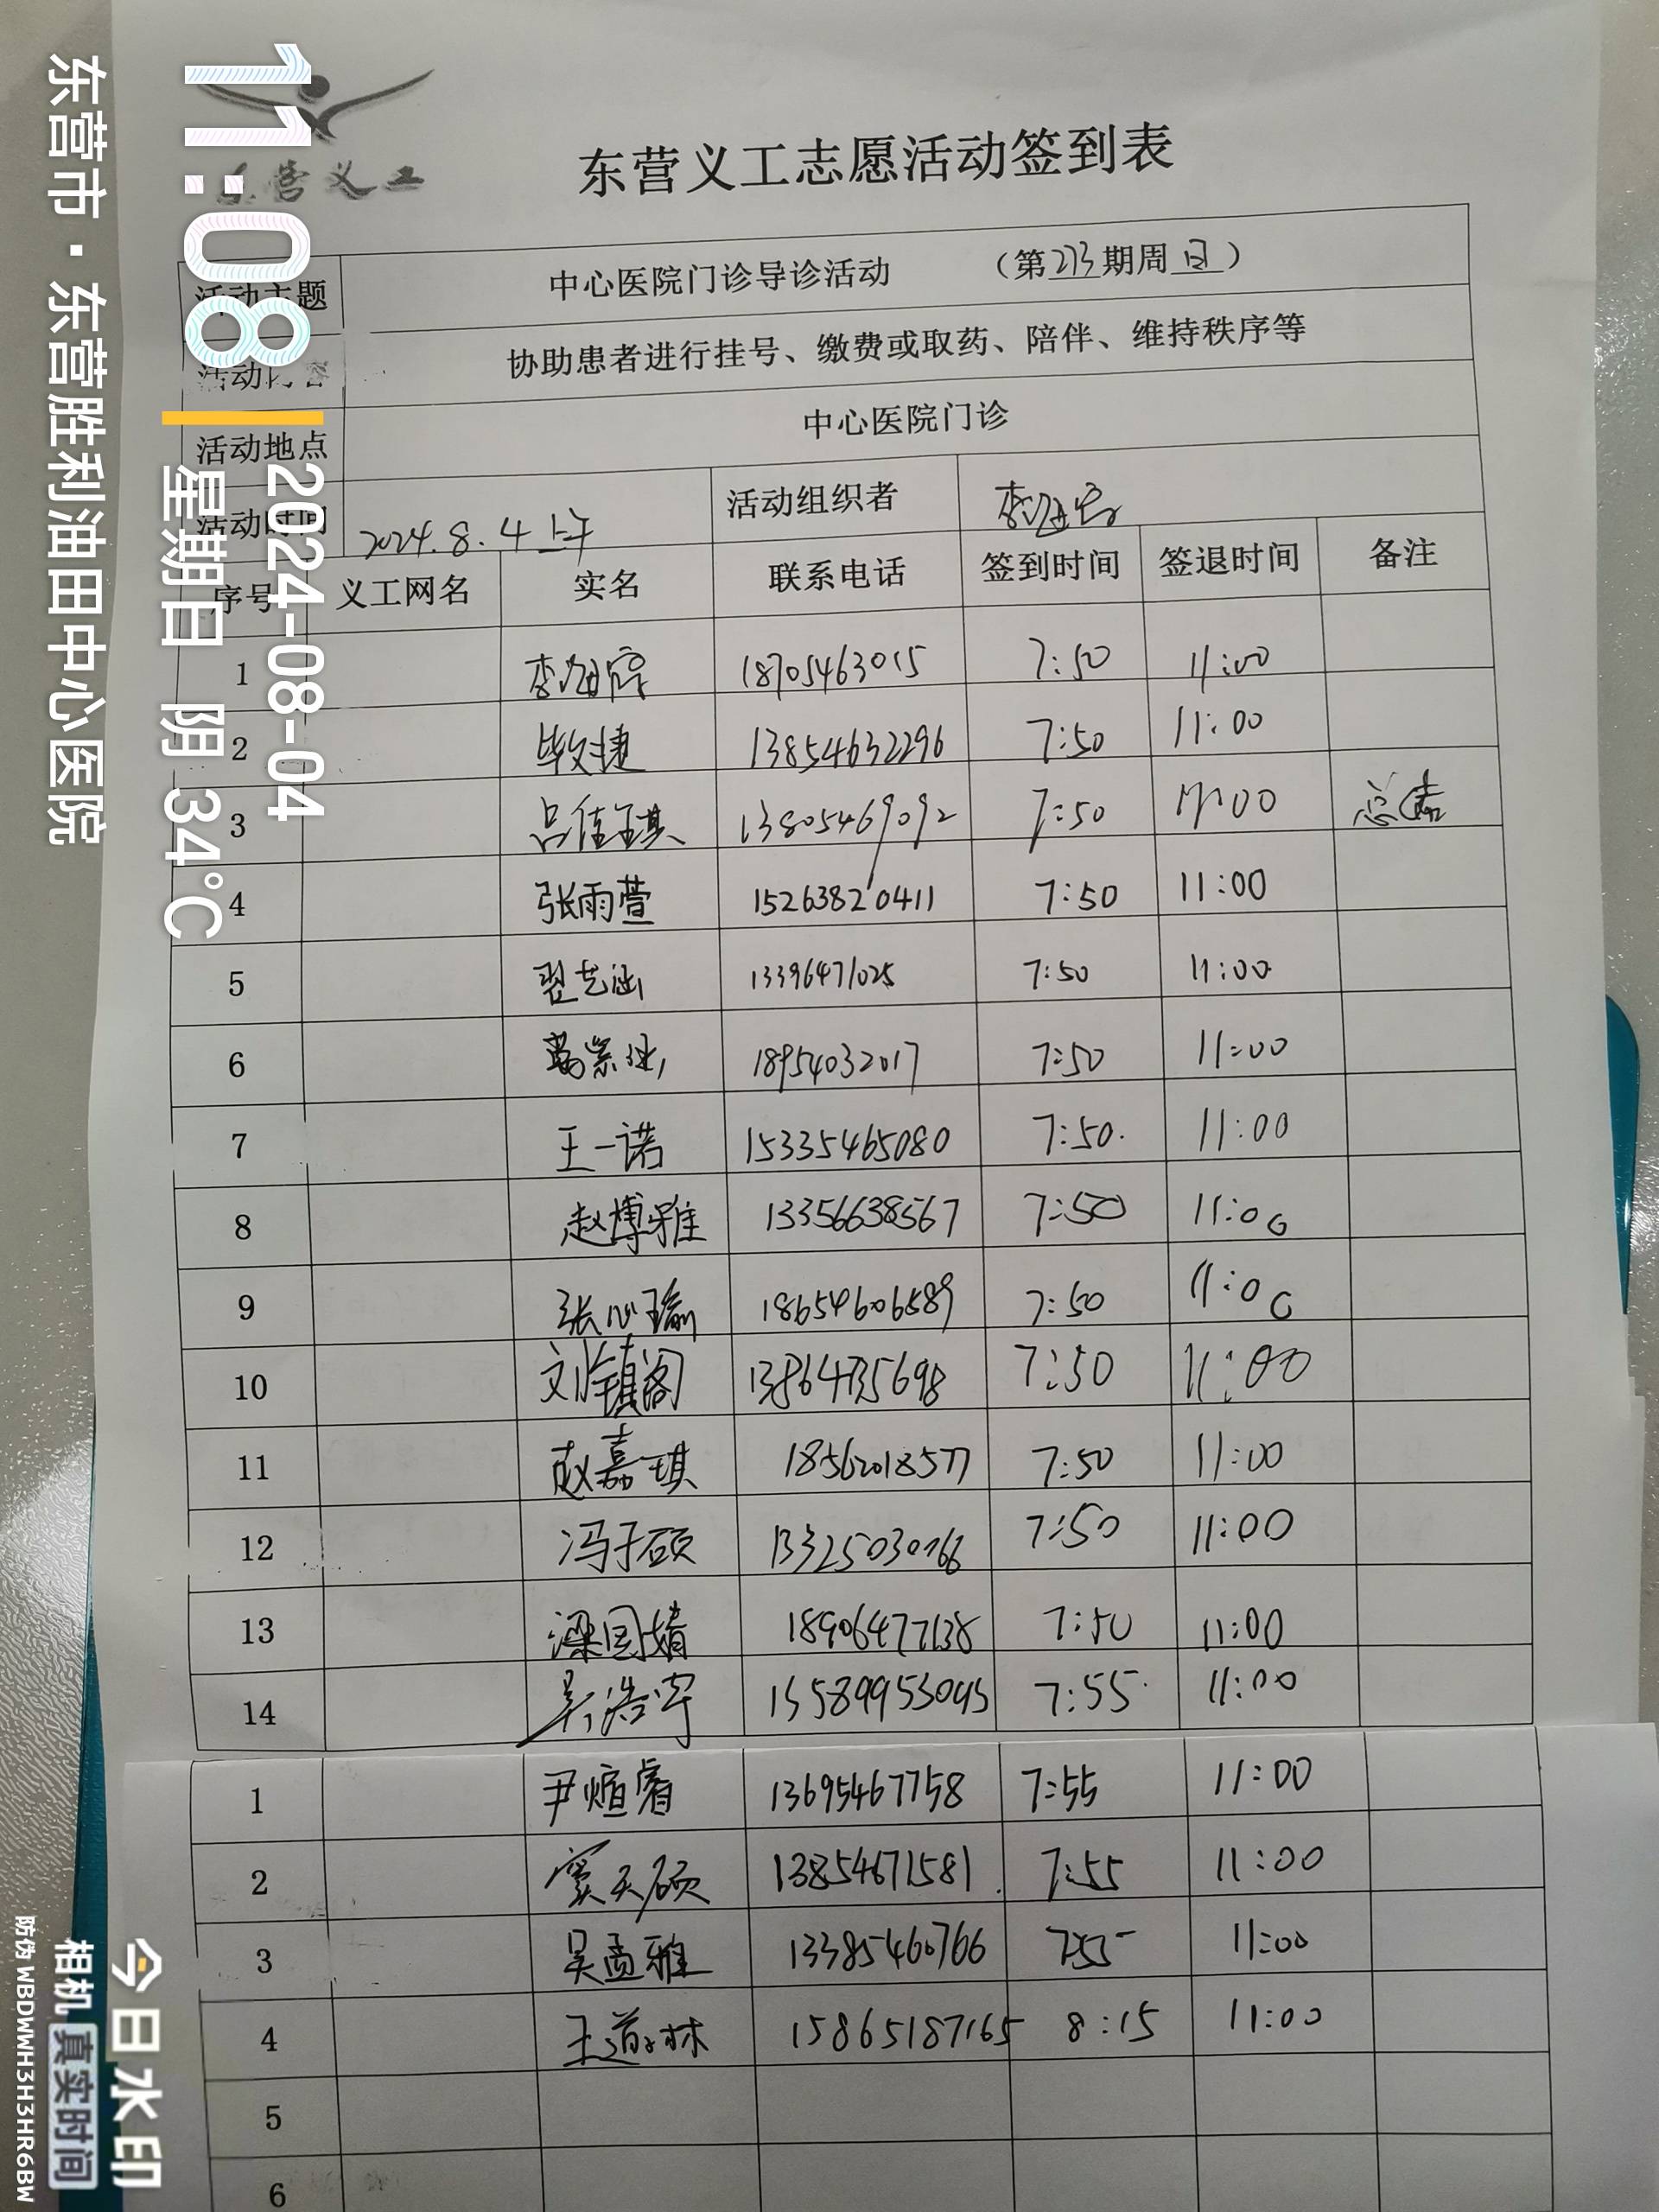 东营义工
东营义工志愿活动签到表
活动主题 中心医院门诊导诊活动 （第213期周日）
活动内容 协助患者进行挂号、缴费或取药、陪伴、维持秩序等
活动地点 中心医院门诊
活动时间 2024.8.4上午 活动组织者
序号 义工网名 实名 联系电话 签到时间 签退时间 备注
1 18705463015 7:50 11:00
2 毕文捷 13854632296 7:50 11:00
3 吕佳琪 13805469092 7:50 11:00
4 张雨萱 15263820411 7:50 11:00
5 13396471025 7:50 11:00
6 18954032017 7:50 11:00
7 王一诺 15335465080 7:50 11:00
8 赵博雅 13356638567 7:50 11:00
9 张心瑜 18654606589 7:50 11:00
10 刘镇阁 7:50 11:00
11 赵嘉琪 18562018577 7:50 11:00
12 冯子硕 7:50 11:00
13 梁国婧 7:50 11:00
14 吴浩宇 7:55 11:00
1 尹煊睿 13695467758 7:55 11:00
2 窦天硕 13854671581 7:55 11:00
3 吴孟雅 13385460766 7:55 11:00
4 王道林 15865187165 8:15 11:00
5
6
11:08
2024-08-04
星期日 阴 34℃
东营市·东营胜利油田中心医院
今日水印
相机 真实时间
防伪 WBDWWH3H3HR6BW